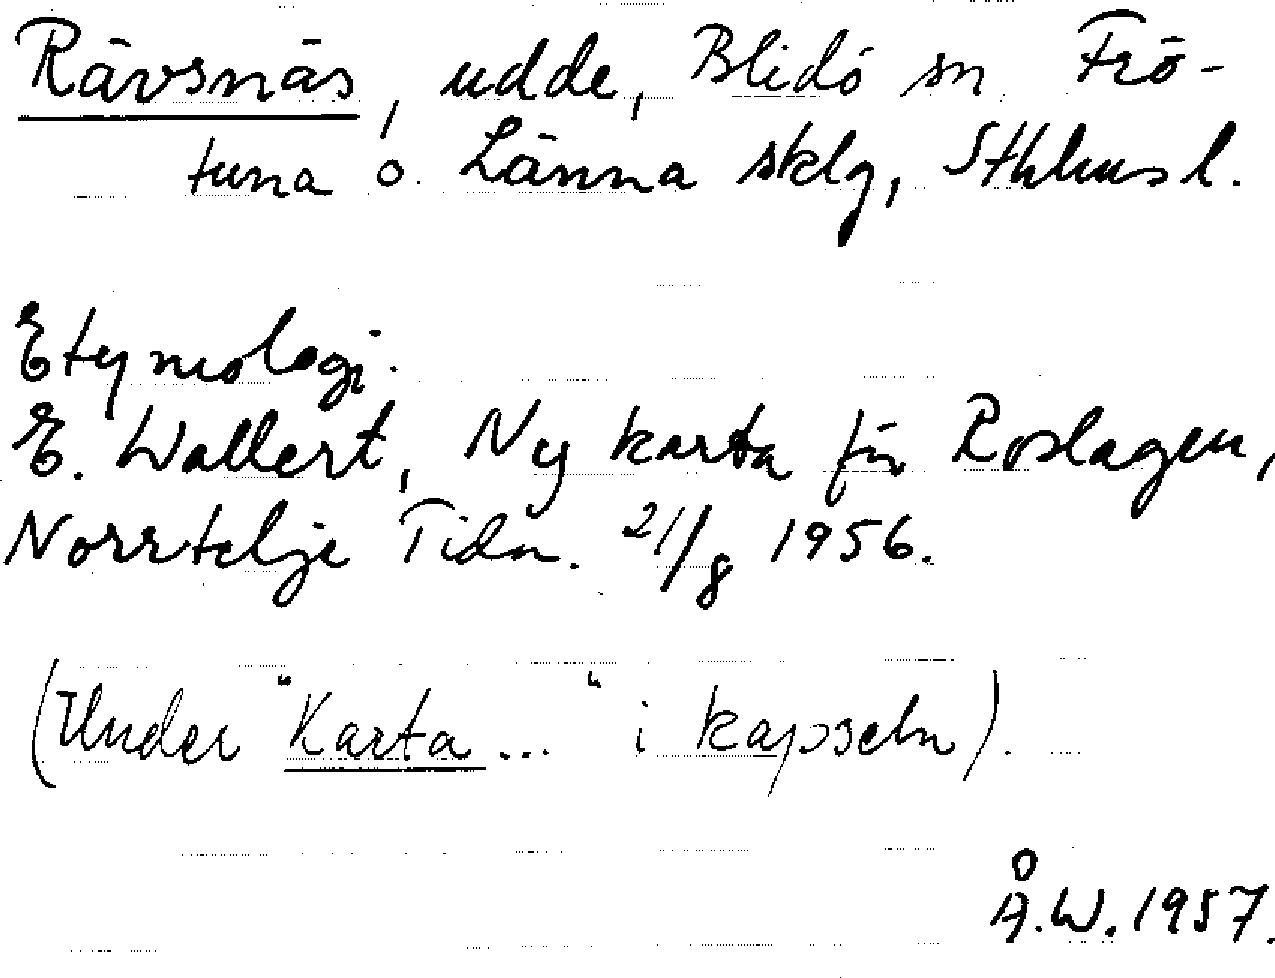 Rävsnäs, udde, Blidö sn Frö-
tuna o. Länna sklg, Sthlms l.
Etymologi.
E. Wallert, Ny karta för Roslagen,
Norrtelje Tidn. 21/8 1956.
(Under "Karta ..." i kapseln).
Å.W. 1957.